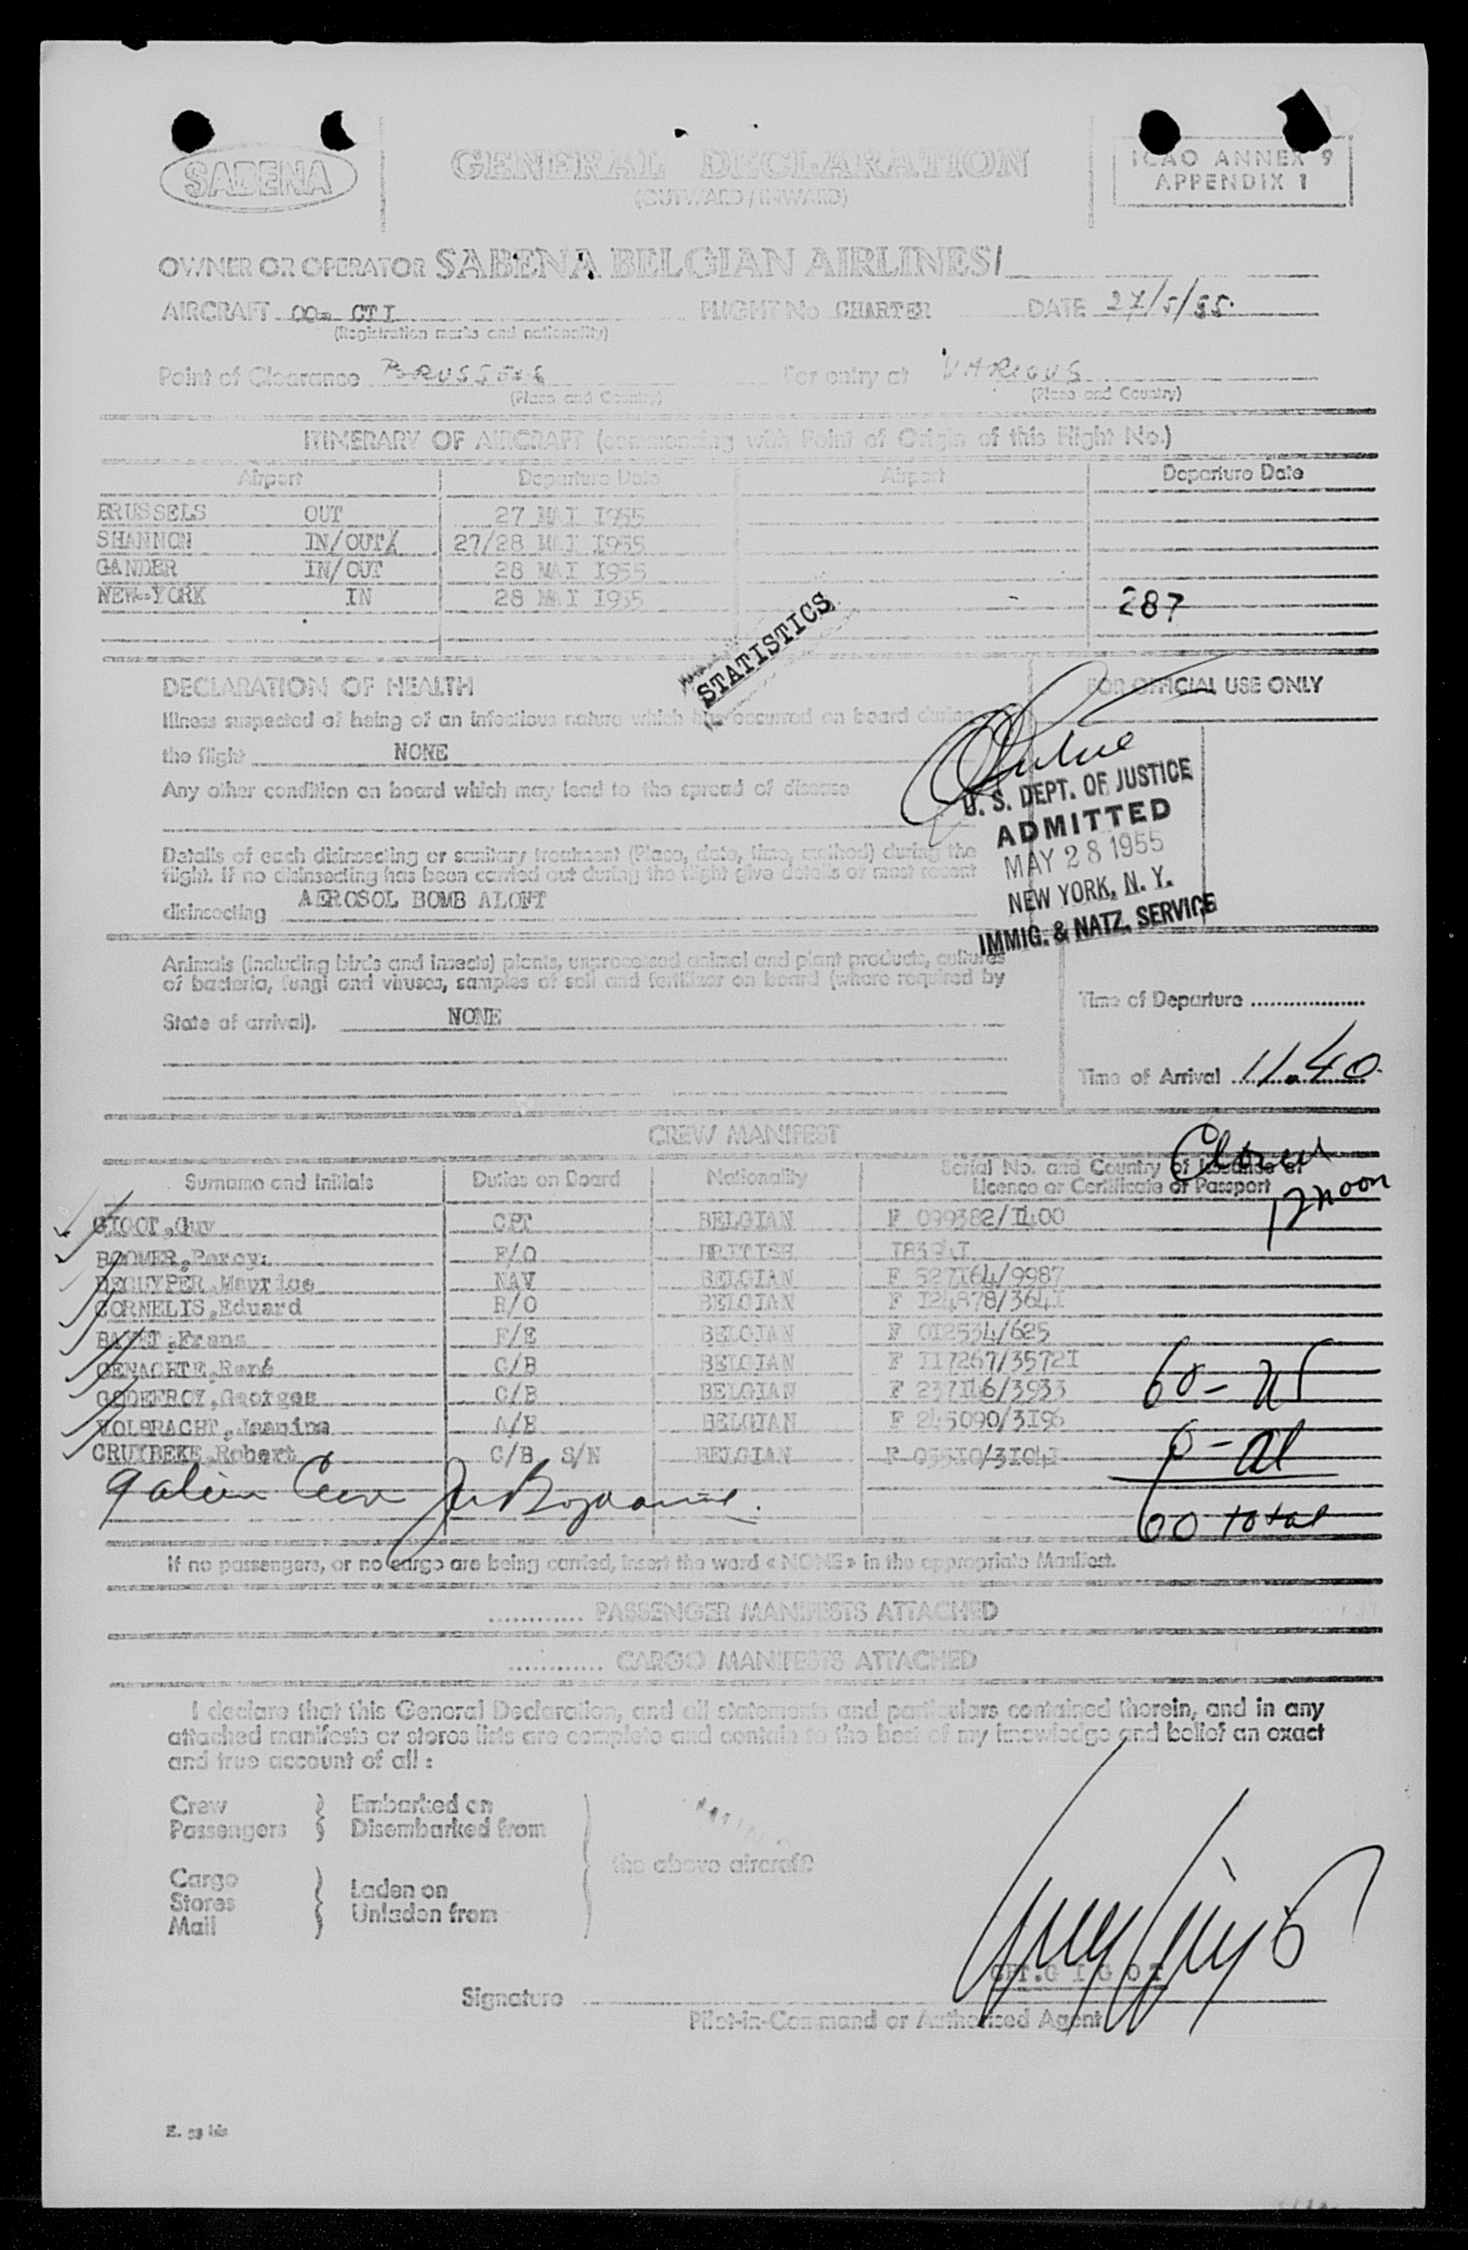 SABENA
GENERAL DECLARATION
(OUTWARD/INWARD)
ICAO ANNEX 9
APPENDIX 1
OWNER OR OPERATOR SABENA BELGIAN AIRLINES/
AIRCRAFT OO= CTI FLIGHT No CHARTER DATE 27/5/55.
(Registration marks and nationality)
Point of Clearance BRUSSELS For entry at VARIOUS
(Place and Country) (Place and Country)
ITINERARY OF AIRCRAFT (commencing with Point of Origin of this Flight No.)
Airport Departure Date Airport Departure Date
BRUSSELS OUT 27 MAI 1955
SHANNON IN/OUT 27/28 MAI 1955
GANDER IN/OUT 28 MAI 1955
NEW-YORK IN 28 MAI 1955 287
STATISTICS
DECLARATION OF HEALTH FOR OFFICIAL USE ONLY
Illness suspected of being of an infectious nature which has occurred on board during
the flight NONE
Any other condition on board which may lead to the spread of disease
U. S. DEPT. OF JUSTICE
ADMITTED
MAY 28 1955
NEW YORK, N. Y.
IMMIG. & NATZ. SERVICE
Details of each disinsecting or sanitary treatment (Place, date, time, method) during the
flight. If no disinsecting has been carried out during the flight give details of most recent
disinsecting AEROSOL BOMB ALOFT
Animals (including birds and insects) plants, unprocessed animal and plant products, cultures
of bacteria, fungi and viruses, samples of soil and fertilizer on board (where required by
State of arrival). NONE
Time of Departure ..................
Time of Arrival 11.40
CREW MANIFEST
Surname and Initials Duties on Board Nationality Serial No. and Country of Issuance of
Licence or Certificate or Passport
12 noon
GIGOT,Guy CPT BELGIAN F 099382/1400
BOOMER,Percy. F/O BRITISH
DECUYPER,Maurice NAV BELGIAN F 527164/9987
CORNELIS,Eduard R/O BELGIAN F 124878/3641
F/E BELGIAN F 012534/625
GENACHTE,René C/B BELGIAN F 117267/35721
GODEFROY,Georges C/B BELGIAN F 237146/3933
VOLBRACHT,Jeanine A/H BELGIAN F 245090/3196
CRUYBEKE,Robert C/B S/N BELGIAN
60 - US
0 - al
60 total
If no passengers, or no cargo are being carried, insert the word « NONE » in the appropriate Manifest.
............ PASSENGER MANIFESTS ATTACHED
............ CARGO MANIFESTS ATTACHED
I declare that this General Declaration, and all statements and particulars contained therein, and in any
attached manifests or stores lists are complete and contain to the best of my knowledge and belief an exact
and true account of all :
Crew Embarked on
Passengers Disembarked from
the above aircraft
Cargo
Stores Laden on
Mail Unladen from
CPT.G I G O T
Signature
Pilot-in-Command or Authorised Agent